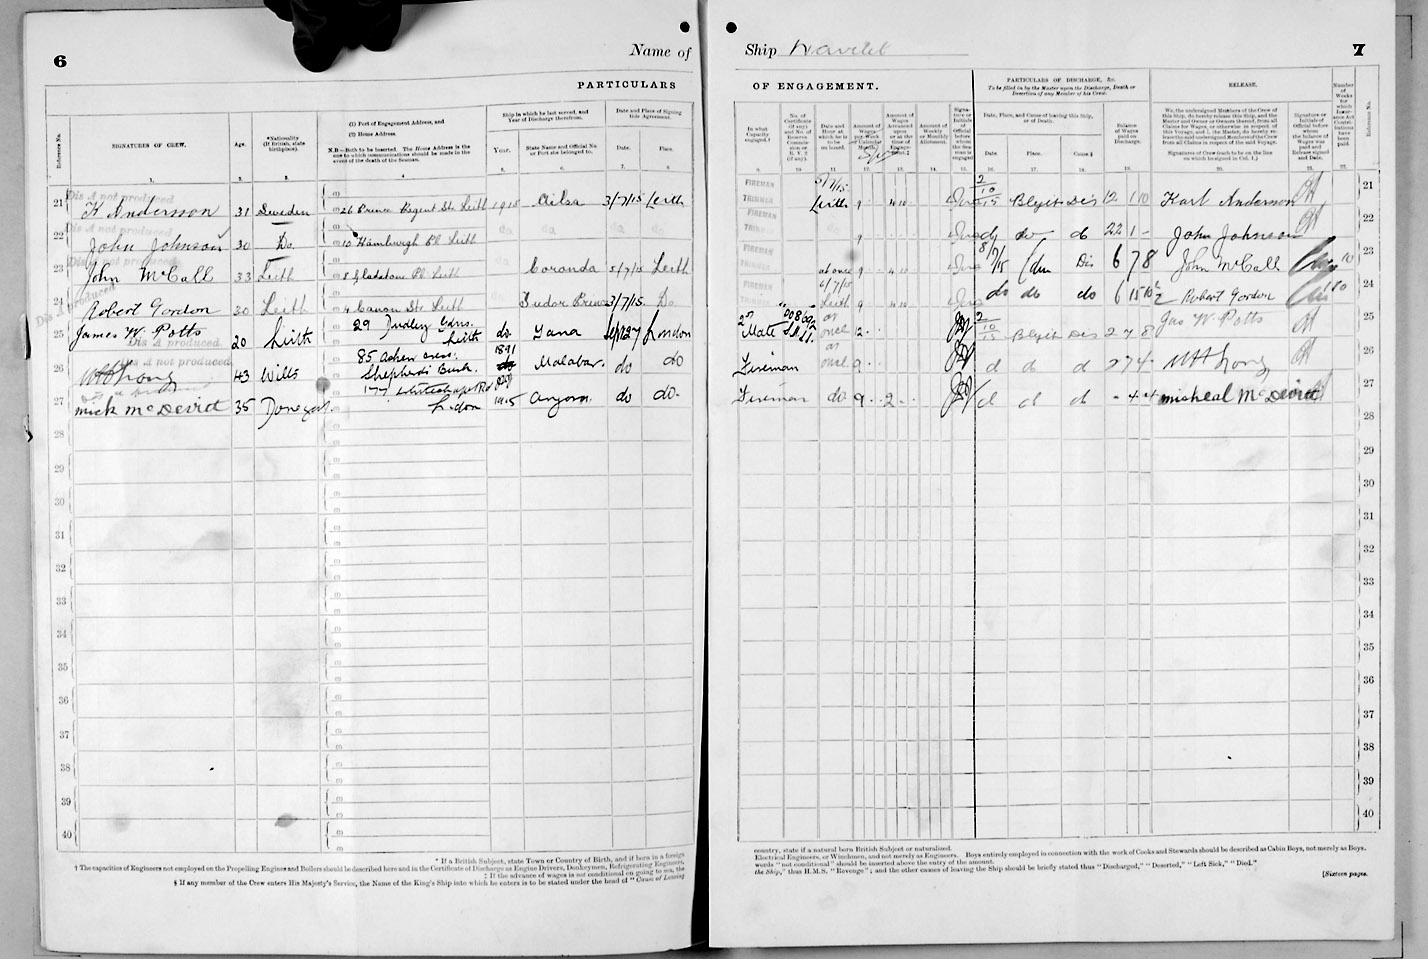 6
Name of
PARTICULARS
Reference No.
SIGNATURES OF CREW.
Age.
*Nationality
(If British, state
birthplace).
(1) Port of Engagement Address, and
(2) Home Address.
N.B.—Both to be inserted. The Home Address is the
one to which communications should be made in the
event of the death of the Seaman.
Ship in which he last served, and
Year of Discharge therefrom.
Year.
State Name and Official No.
or Port she belonged to.
Date and Place of Signing
this Agreement.
Date.
Place.
1. 2. 3. 4 5. 6. 7. 8
Dis A not produced
21 K Andersson 31 Sweden 26 Prince Regent St. Leith 1915 Ailsa 3/7/15 Leith
Dis A not produced
22 John Johnson 30 Do. 10 Hamburgh Pl Leith do do do do
Dis A not produced
23 John McCall 33 Leith 8 Gladstone Pl Leith Coranda 5/7/15 Leith
24 Robert Gordon 30 Leith 4 Canon St. Leith 3/7/15. Do.
Dis A not produced
25 James W. Potts 20 Leith 29 Dudley Gdns. Leith do Yana Sept 27 London
Dis A not produced
26 43 Wills 85 Shepherds Bush. 1891 Malabar. do do
27 Mick McDevitt 35 Donegal. 177 Whitechapel Rd London 1915 do do.
28
29
30
31
32
33
34
35
36
37
38
39
40
* If a British Subject, state Town or Country of Birth, and if born in a foreign
† The capacities of Engineers not employed on the Propelling Engines and Boilers should be described here and in the Certificate of Discharge as Engine Drivers, Donkeymen, Refrigerating Engineers,
‡ If the advance of wages is not conditional on going to sea, the
§ If any member of the Crew enters His Majesty's Service, the Name of the King's Ship into which he enters is to be stated under the head of "Cause of Leaving
Ship
7
OF ENGAGEMENT.
PARTICULARS OF DISCHARGE, &c.
To be filled in by the Master upon the Discharge, Death or
Desertion of any Member of his Crew.
RELEASE.
In what
Capacity
engaged.†
No. of
Certificate
(if any)
and No. of
Reserve
Commis-
sion or
R. V. 2
(if any).
Date and
Hour at
which he is
to be
on board.
Amount of
Wages
per Week
or Calendar
Month.
Amount of
Wages
Advanced
upon
or at the
time of
Engage-
ment.‡
Amount of
Weekly
or Monthly
Allotment.
Signa-
ture or
Initials
of
Official
before
whom the
Seaman is
engaged
Date, Place, and Cause of leaving this Ship,
or of Death.
Date.
Place.
Cause.§
Balance
of Wages
paid on
Discharge.
We, the undersigned Members of the Crew of
this Ship, do hereby release this Ship, and the
Master and Owner or Owners thereof, from all
Claims for Wages, or otherwise in respect of
this Voyage, and I, the Master, do hereby re-
lease the said undersigned Members of the Crew
from all Claims in respect of the said Voyage.
Signatures of Crew (each to be on the line
on which he signed in Col. 1.)
Signature or
Initials of
Official before
whom
the balance of
Wages was
paid and
Release signed
and Date.
Number
of
Weeks
for
which
Insur-
ance Act
Contri-
butions
have
been
paid.
Reference No.
9. 10 11. 12. 13. 14. 15. 16. 17. 18. 19. 20. 21. 22.
FIREMAN TRIMMER 5/7/15 Leith 9 4 10 2/10/15 Blyth Dis 12 1 10 Karl Anderson 21
FIREMAN 9 do do 22 1 - John Johnson 22
FIREMAN TRIMMER at once 9 4 10 Dis 6 7 8 John McCall 23
FIREMAN TRIMMER 6/7/15 Leith 9 4 10 do do do 6 15 10 Robert Gordon 24
2nd Mate at once 12 2/10/15 Blyth Dis 2 7 8 Jas W. Potts 25
Fireman at once 9 d d d 2 7 4 26
Fireman do 9 2 d d d - 4 4 Misheal McDevitt 27
28
29
30
31
32
33
34
35
36
37
38
39
40
country, state if a natural born British Subject or naturalized.
Electrical Engineers, or Winchmen, and not merely as Engineers. Boys entirely employed in connection with the work of Cooks and Stewards should be described as Cabin Boys, not merely as Boys.
words "not conditional" should be inserted above the entry of the amount.
the Ship," thus H.M.S. "Revenge"; and the other causes of leaving the Ship should be briefly stated thus "Discharged," "Deserted," "Left Sick," "Died."
[Sixteen pages.